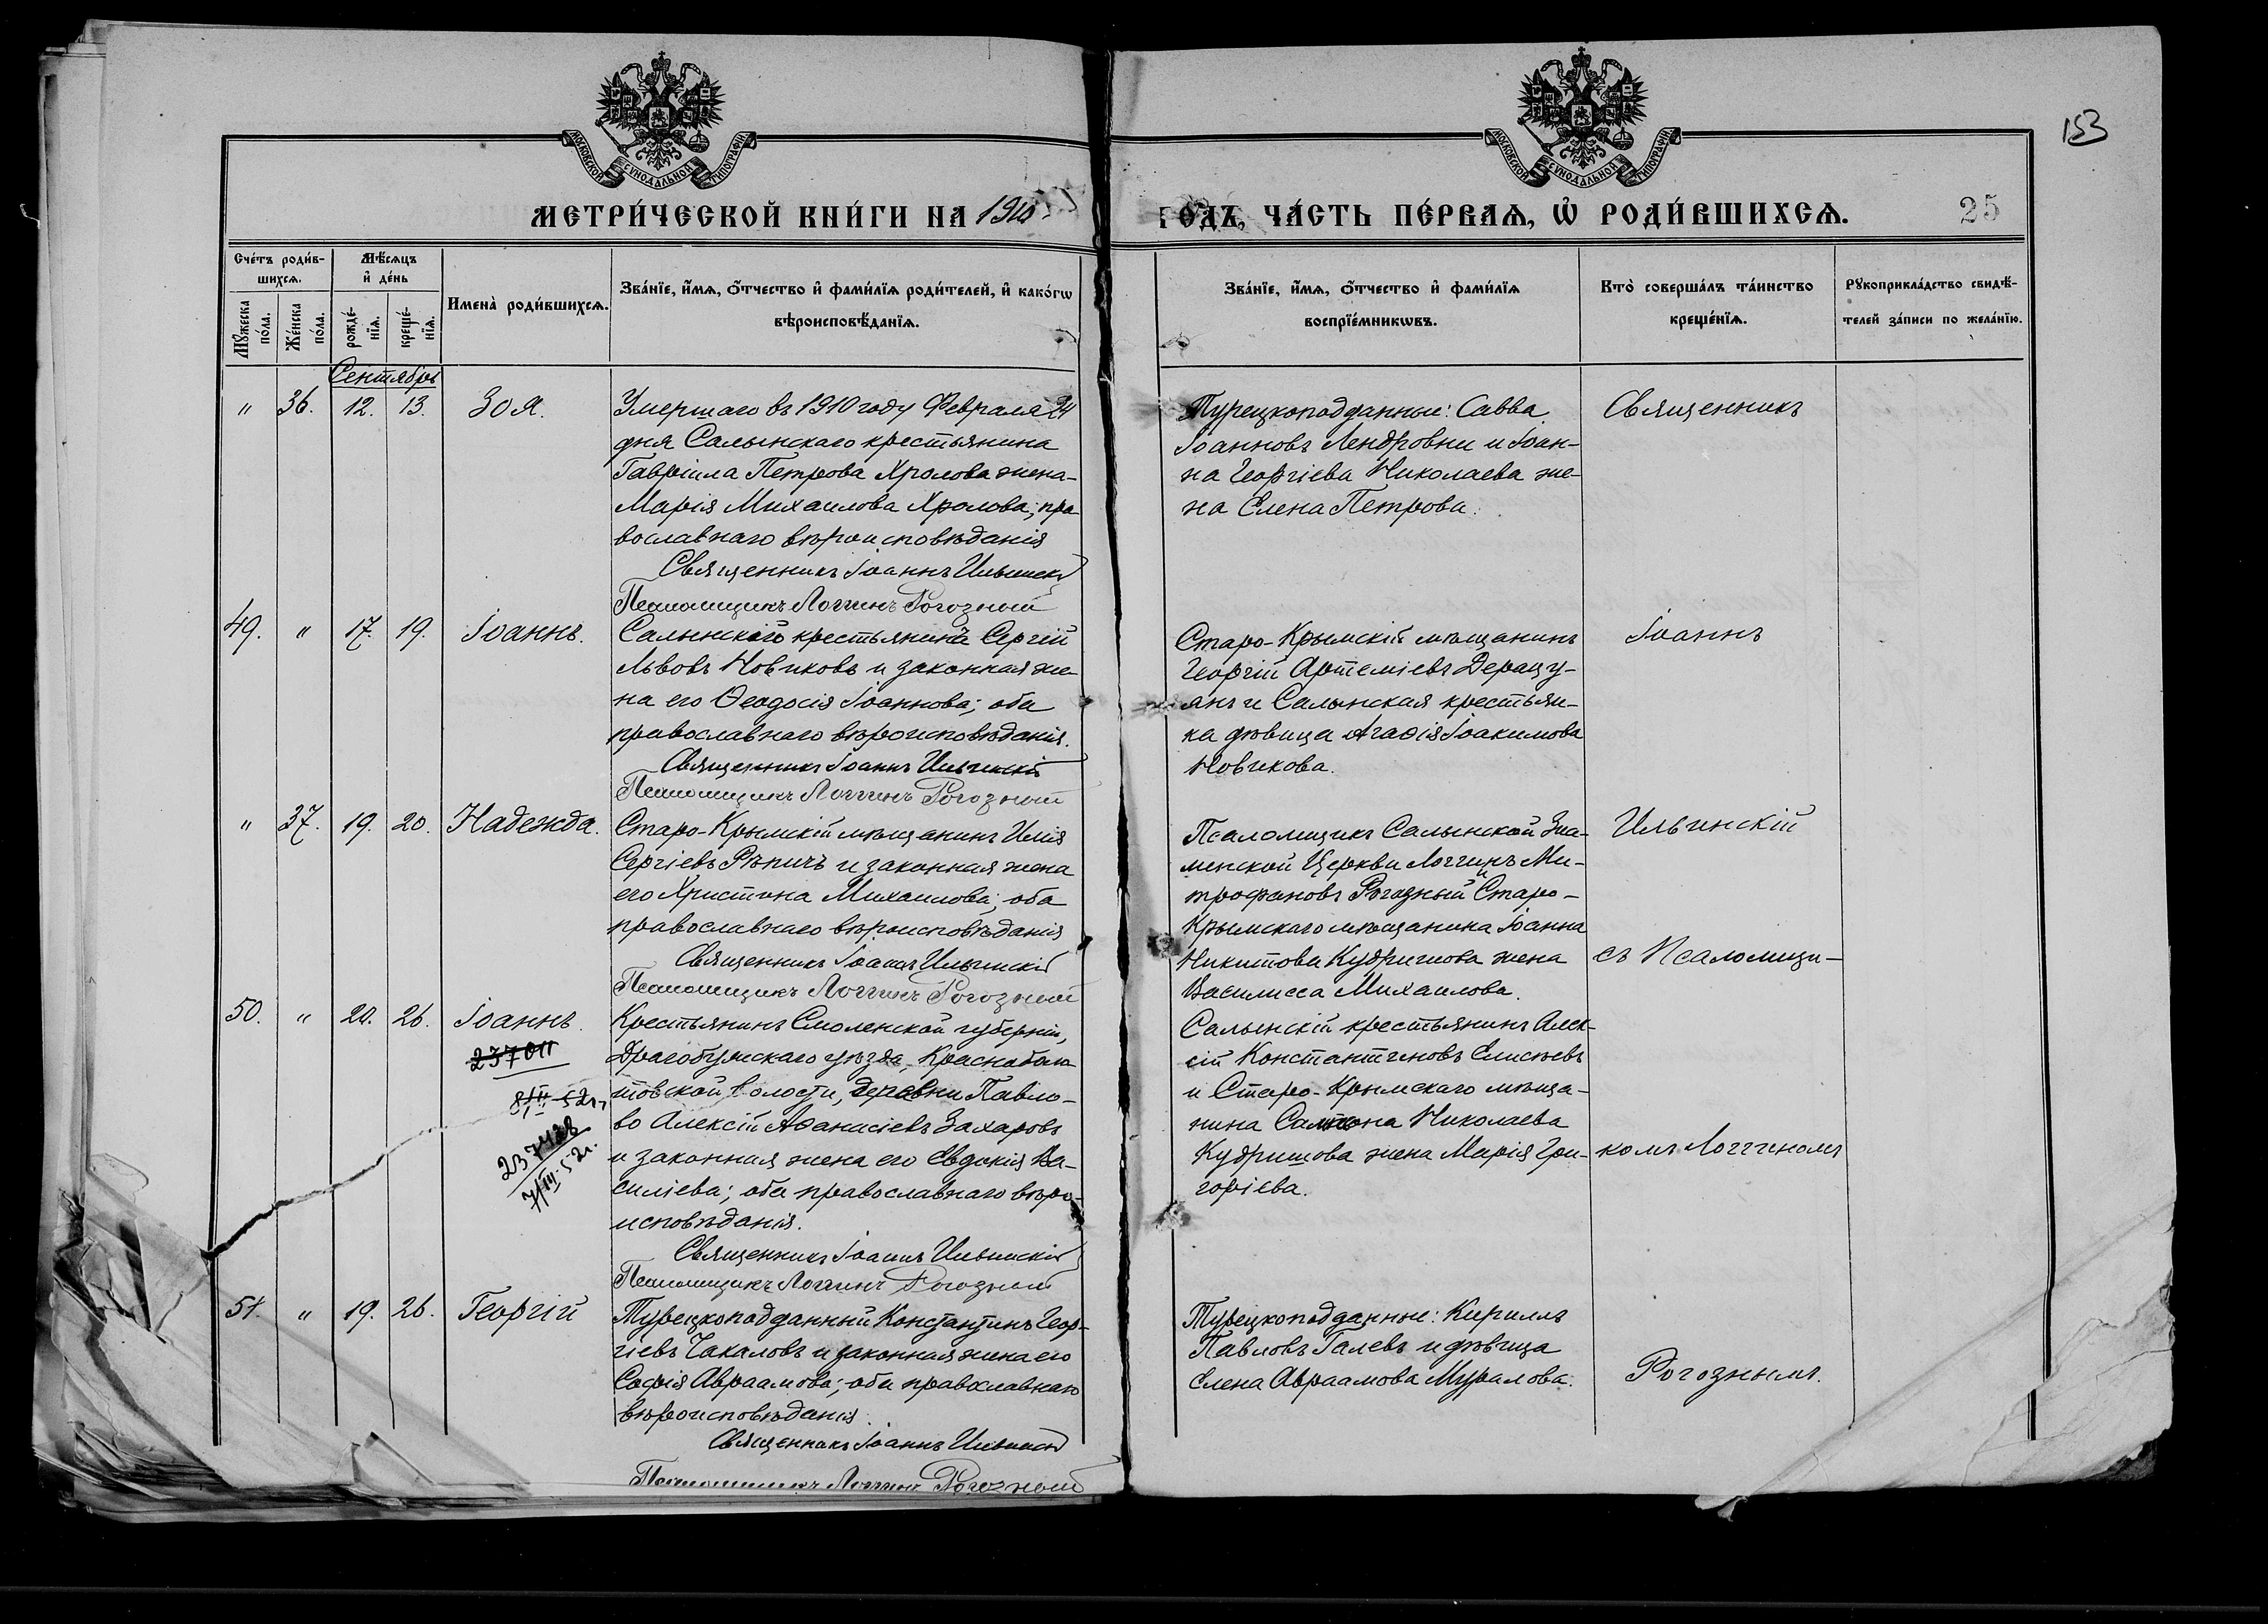 153
МОСКОВСКОЙ СУНОДАЛЬНОЙ ТИПОГРАФІИ
МОСКОВСКОЙ СУНОДАЛЬНОЙ ТИПОГРАФІИ
МЕТРИ́ЧЕСКОЙ КНИ́ГИ НА 1910
ГО́ДЪ, ЧА́СТЬ ПЕ́РВАѦ, Ѡ҆ РОДИ́ВШИХСѦ.
25
Сче́тъ роди́в-
шихсѧ.
Мѣ́сѧцъ
и҆ де́нь
Имена̀ роди́вшихсѧ.
Зва́нїе, и҆́мѧ, ѻ҆́тчество и҆ фами́лїѧ роди́телей, и҆ како́гѡ
вѣроисповѣ́данїѧ.
Мꙋ́жеска
по́ла.
Же́нска
по́ла.
рожде́-
нїѧ.
креще́-
нїѧ.
Зва́нїе, и҆́мѧ, ѻ҆́тчество и҆ фами́лїѧ
воспрїе́мникѡвъ.
Кто̀ соверша́лъ та́инство
креще́нїѧ.
Рꙋкоприкла́дство свидѣ́-
телей за́писи по жела́нїю.
Сентябрь
" 36. 12. 13. Зоя.
Умершаго въ 1910 году Февраля 24
дня Салынскаго крестьянина
Гавріила Петрова Хролова жена
Марія Михаилова Хролова; пра
вославнаго вѣроисповѣданія
Священникъ Іоаннъ Ильинскій
Псаломщикъ Логгинъ Рогозный
Турецкоподданные: Савва
Іоанновъ Лендровни и Іоан-
на Георгіева Николаева же-
на Елена Петрова.
Священникъ
49. " 17. 19. Іоаннъ.
Салынскаго крестьянина Сергій
Львовъ Новиковъ и законная же
на его Ѳеодосія Іоаннова; оба
православнаго вѣроисповѣданія.
Священникъ Іоаннъ Ильинскій
Псаломщикъ Логгинъ Рогозный
Старо-Крымскій мѣщанинъ
Георгій Артеміевъ Дерацу-
янъ и Салынская крестьян-
ка дѣвица Агаѳія Іоакимова
Новикова.
Іоаннъ
" 37. 19. 20. Надежда.
Старо-Крымскій мѣщанинъ Илія
Сергіевъ Рѣпичъ и законная жена
его Христина Михаилова; оба
православнаго вѣроисповѣданія
Священникъ Іоаннъ Ильинскій
Псаломщикъ Логгинъ Рогозный
Псаломщикъ Салынской Зна-
менской Церкви Логгинъ Ми-
трофановъ Рогозный и Старо-
Крымскаго мѣщанина Іоанна
Никитова Кудришова жена
Василисса Михаилова.
Ильинскій
съ Псаломщи-
50. " 20. 26. Іоаннъ.
237011
8/III 52 г,
237428
7/III 52 г.
Крестьянинъ Смоленской губерніи,
Драгобужскаго уѣзда, Красноболо
товской волости, деревни Павло-
во Алексій Аѳанасіевъ Захаровъ
и законная жена его Евдокія Ва-
силіева; оба православнаго вѣро-
исповѣданія.
Священникъ Іоаннъ Ильинскій
Псаломщикъ Логгинъ Рогозный
Салынскій крестьянинъ Алек-
сій Константиновъ Елисѣевъ
и Старо-Крымскаго мѣща-
нина Николаева
Кудришова жена Марія Гри-
горіева.
комъ Логгиномъ
51. " 19. 26. Георгій
Турецкоподданный Константинъ Геор-
гіевъ Чакаловъ и законная жена его
Софія Авраамова; оба православнаго
вѣроисповѣданія.
Священникъ Іоаннъ Ильинскій
Псаломщикъ Логгинъ Рогозный
Турецкоподданные: Кириллъ
Павловъ Галевъ и дѣвица
Елена Авраамова Муралова.
Рогознымъ.